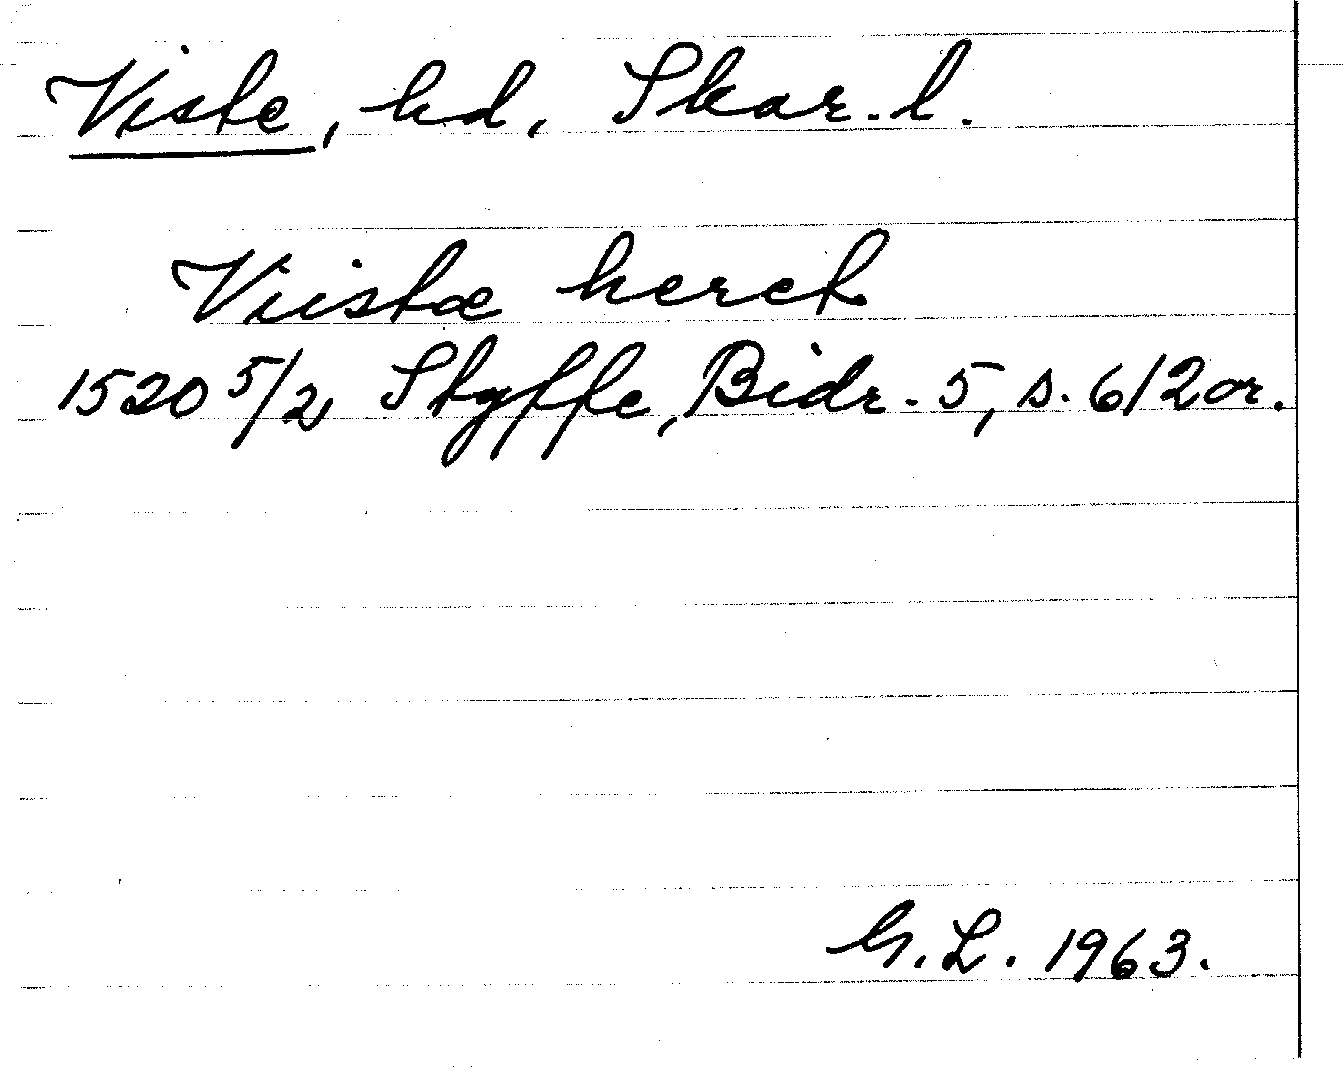 Viste, hd, Skar. l.
Viistæ hereh
1520 5/2 Styffe, Bidr. 5, s. 612 or.
G. L. 1963.